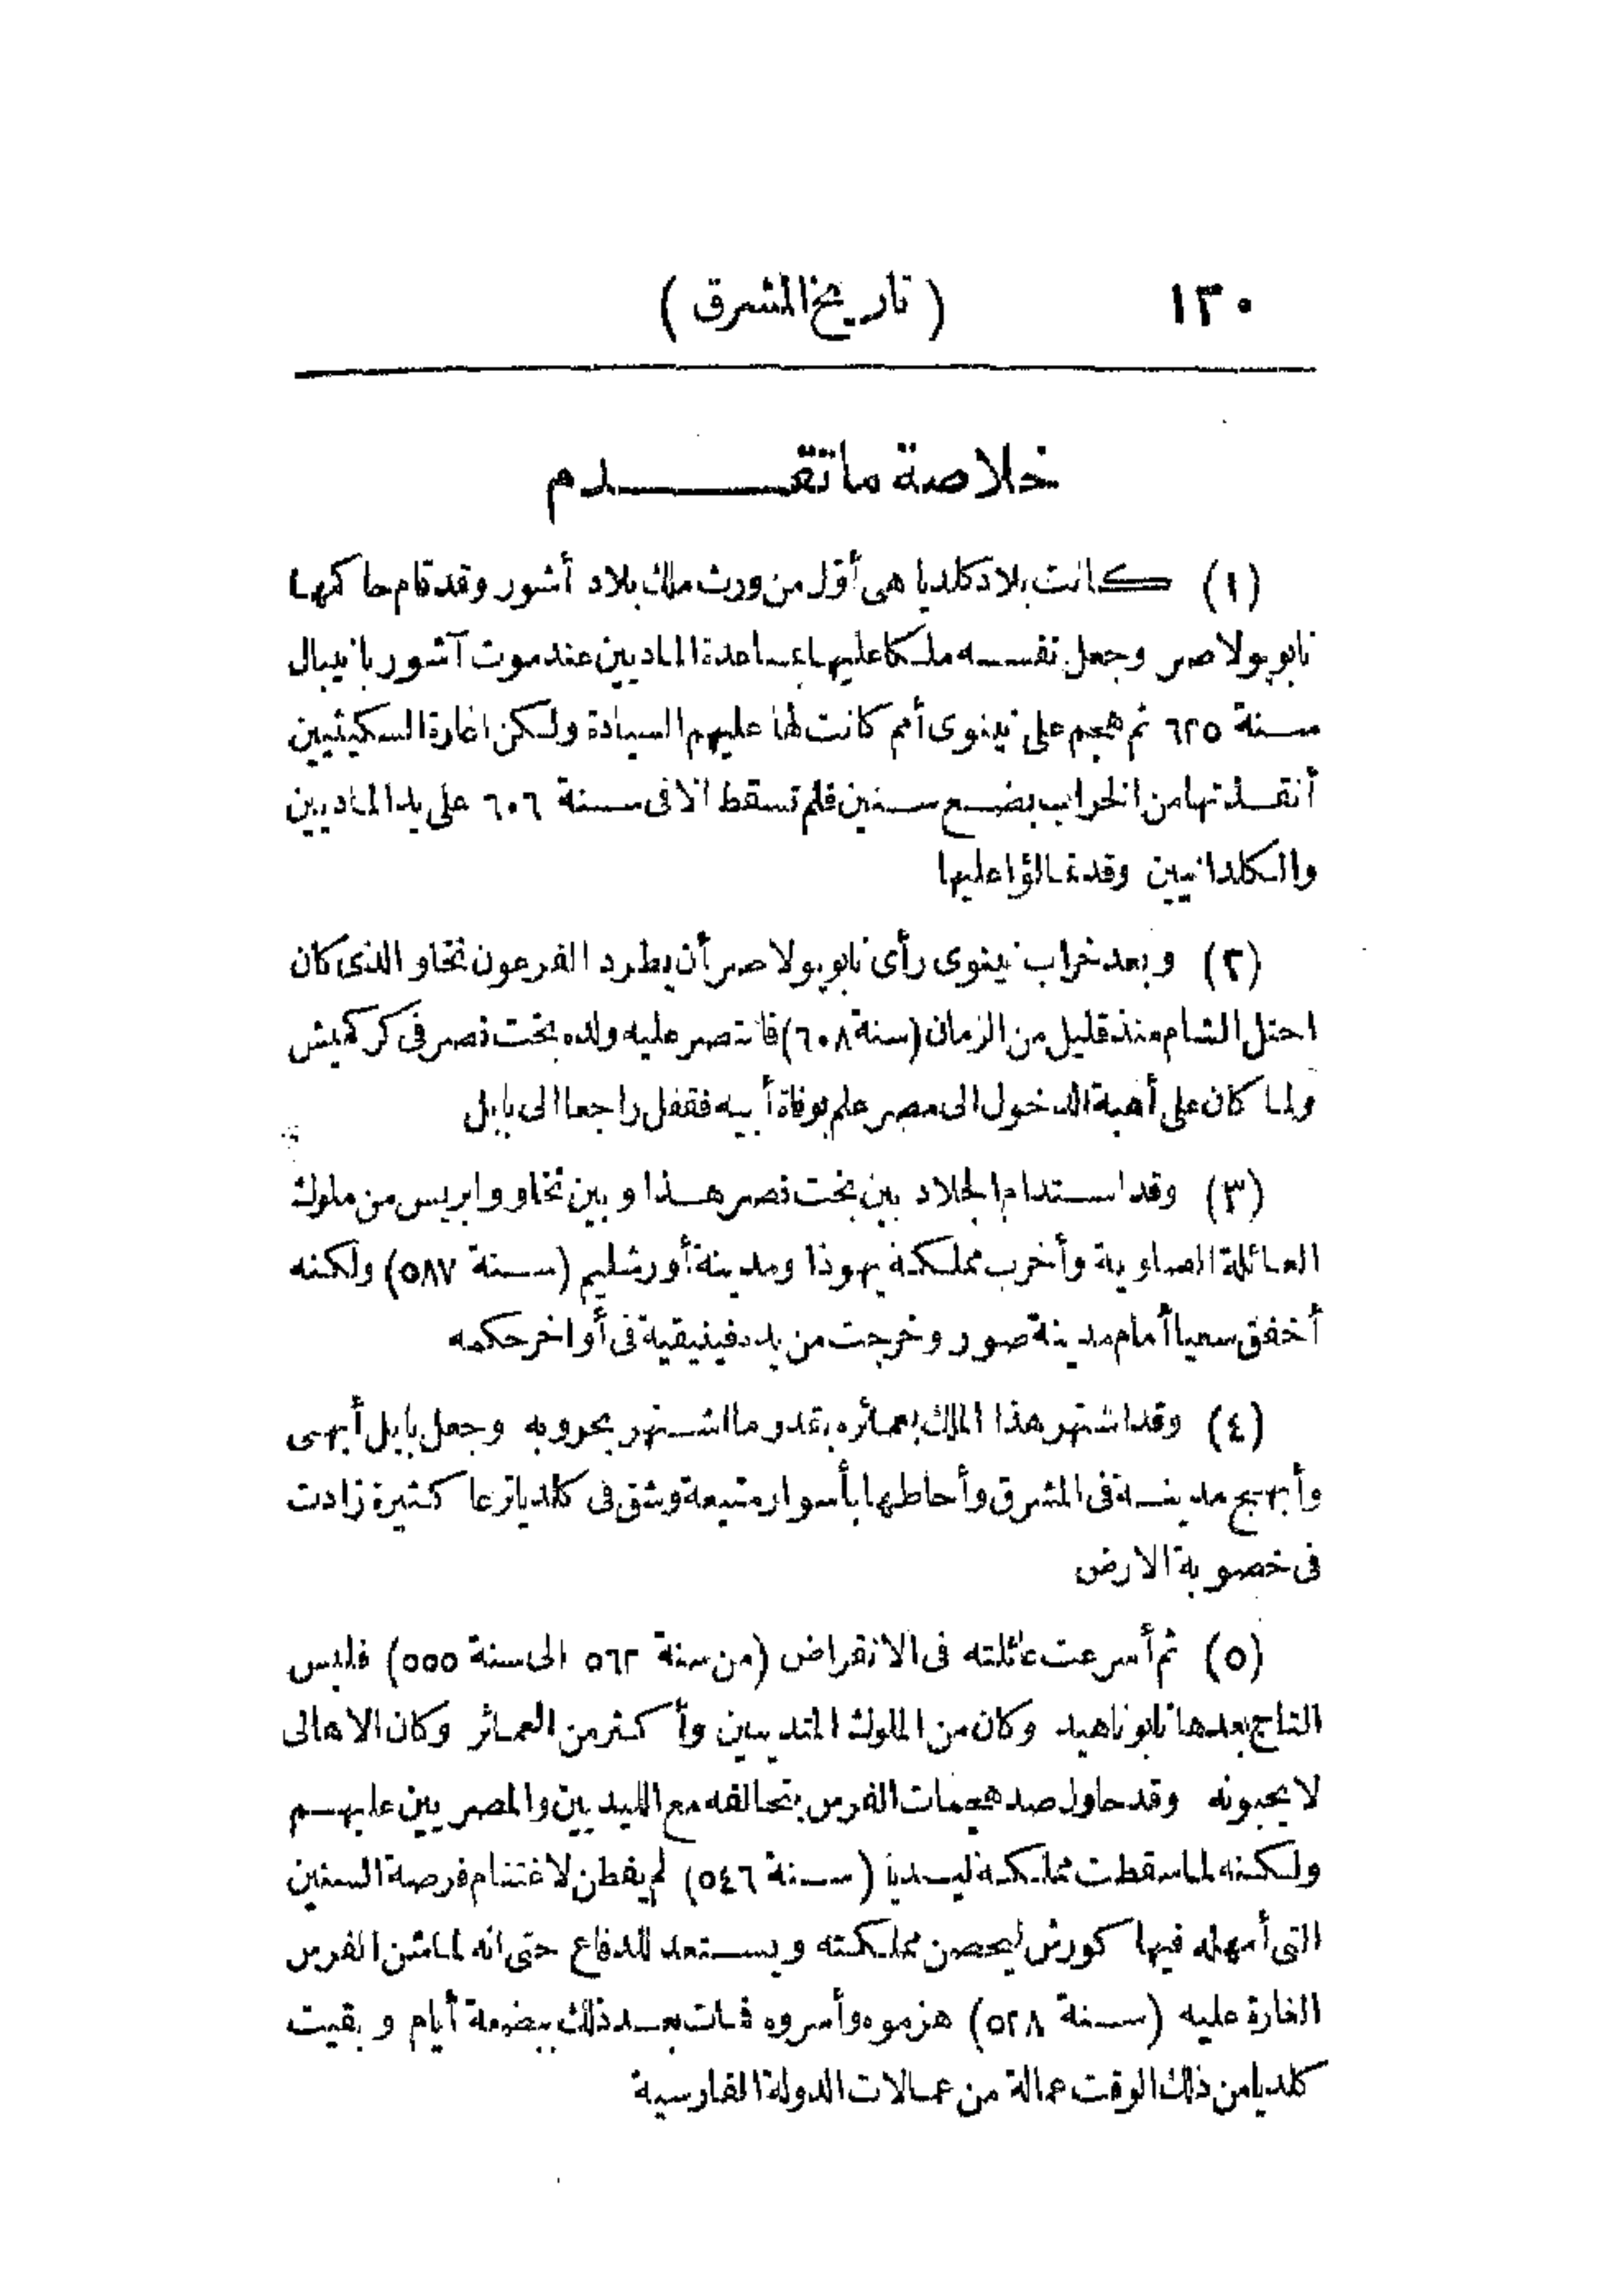 ١٣٠ ( تاريخ المشرق )
خلاصة ما تقدم
(١) كانت بلاد كلديا هى أوّل من ورث ملك بلاد أشور وقد قام حاكمها
نابوبولاصر وجعل نفسه ملكا عليها بمساعدة الماديين عند موت آشور بانيبال
سنة ٦٢٥ ثم هجم على نينوى أمم كانت لها عليهم السيادة ولكن اغارة السكيثيين
أنقذتها من الخراب بضع سنين فلم تسقط الا فى سنة ٦٠٦ على يد الماديين
والكلدانيين وقد تمالؤا عليها
(٢) وبعد خراب نينوى رأى نابوبولاصر أن يطرد الفرعون نخاو الذى كان
احتل الشام منذ قليل من الزمان (سنة ٦٠٨) فانتصر عليه ولده بخت نصر فى كركميش
ولما كان على أهبة الدخول الى مصر علم بوفاة أبيه فقفل راجعا الى بابل
(٣) وقد استدام الجلاد بين بخت نصر هذا وبين نخاو وابريس من ملوك
العائلة الصاوية وأخرب مملكة يهوذا ومدينة أورشليم (سنة ٥٨٧) ولكنه
أخفق سعيا أمام مدينة صور وخرجت من يده فينيقية فى أواخر حكمه
(٤) وقد اشتهر هذا الملك بعمائره بقدر ما اشتهر بحروبه وجعل بابل أبهى
وأبهج مدينة فى المشرق وأحاطها بأسوار منيعة وشق فى كلديا ترعا كثيرة زادت
فى خصوبة الارض
(٥) ثم أسرعت عائلته فى الانقراض (من سنة ٥٦٢ الى سنة ٥٥٥) فلبس
التاج بعدها نابوناهيد وكان من الملوك المتديبين وأكثر من العمائر وكان الاهالى
لا يحبونه وقد حاول صد هجمات الفرس بتحالفه مع الليديين والمصريين عليهم
ولكنه لما سقطت مملكة ليديا (سنة ٥٤٦) لم يفطن لاغتنام فرصة السنين
التى أمهله فيها كورش ليحصن مملكته ويستعد للدفاع حتى انه لما شن الفرس
الغارة عليه (سنة ٥٣٨) هزموه وأسروه فمات بعد ذلك ببضعة أيام وبقيت
كلديا من ذلك الوقت عمالة من عمالات الدولة الفارسية